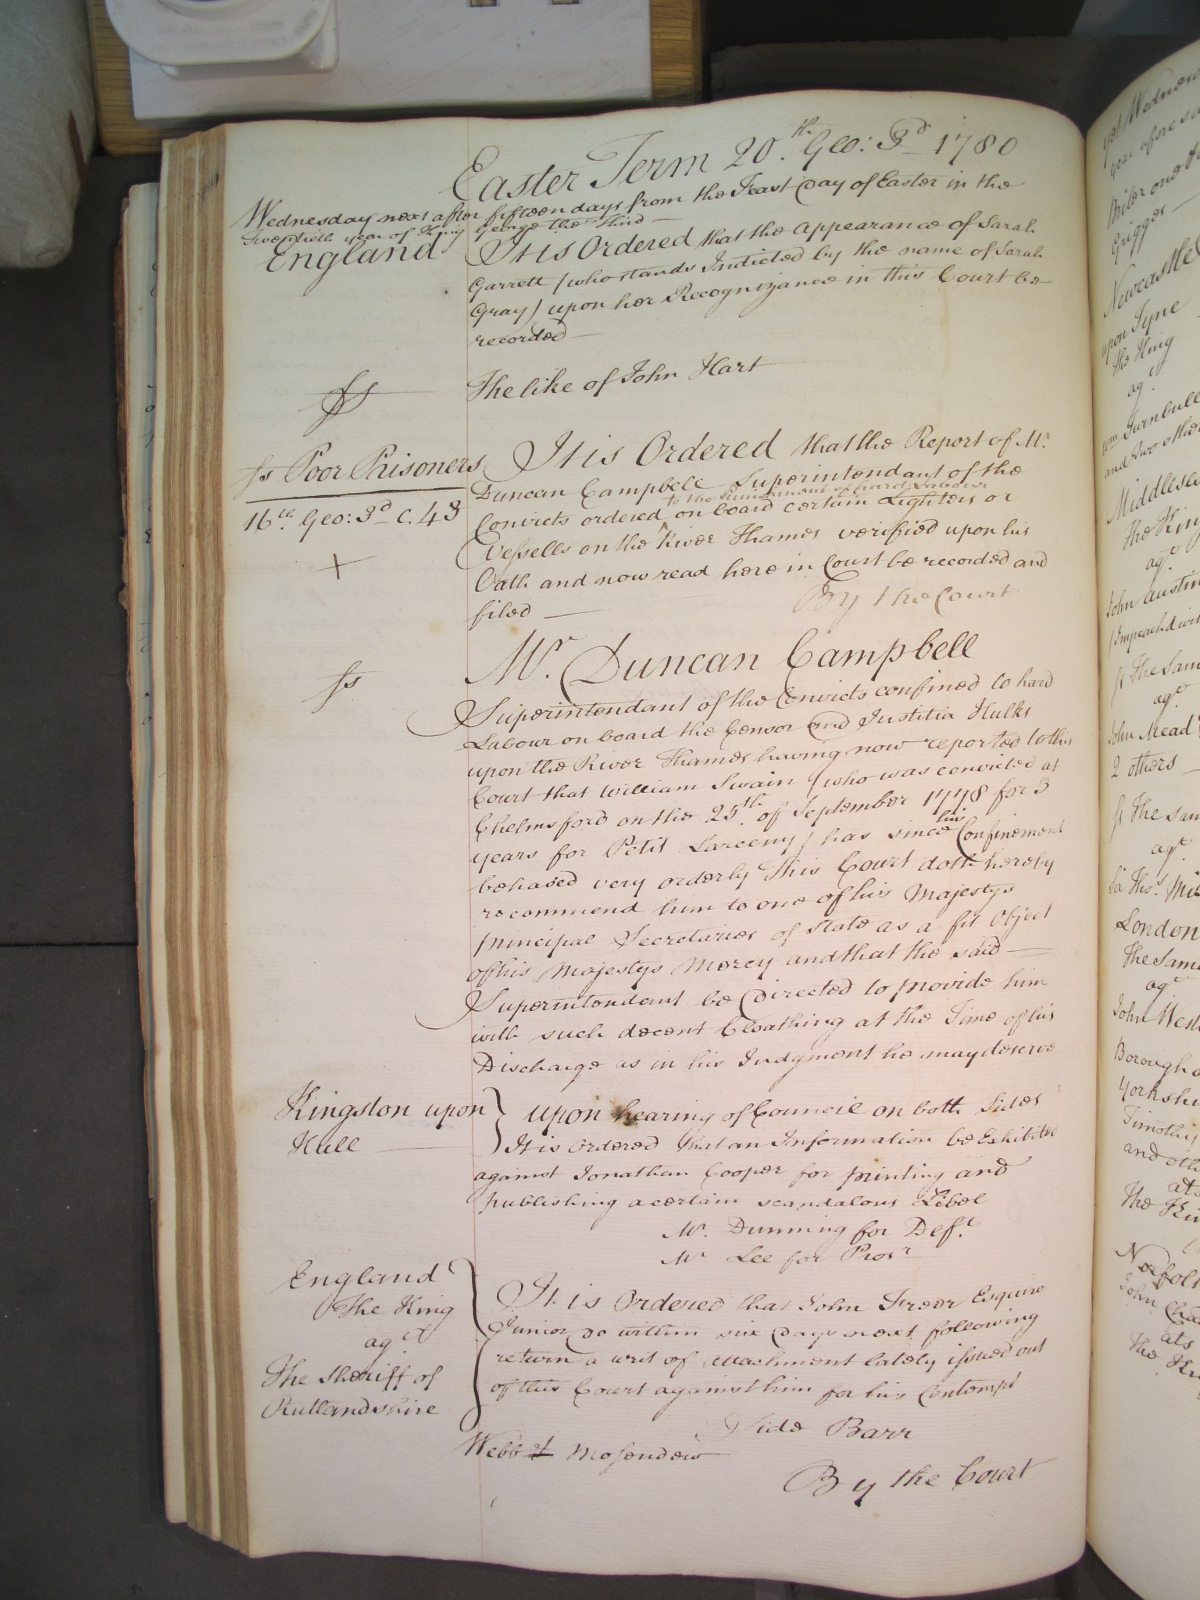 Easter Term 20.th Geo: 3d 1780
Wednesday next after fifteen days from the Feast Day of Easter in the
twentieth year of King George the Third
England It is Ordered that the appearance of Sarah
Garrett (who stands Indicted by the name of Sarah
Gray) upon her Recognizance in this Court be
recorded
fs The like of John Hart
fs Poor Prisoners It is Ordered that the Report of Mr.
Duncan Campbell Superintendant of the
to the punishment of hard Labour
16th. Geo: 3d c. 43 Convicts ordered ^ on board certain Lighters or
Vessells on the River Thames verified upon his
+ Oath and now read here in Court be recorded and
filed
By the Court
fs Mr. Duncan Campbell
Superintendant of the Convicts confined to hard
Labour on board the Censor and Justitia Hulks
upon the River Thames having now reported to this
Court that William Swain (who was convicted at
Chelmsford on the 25th. of September 1778 for 3
years for Petit Larceny) has since his Confinement
behaved very orderly This Court doth hereby
recommend him to one of his Majestys
principal Secretaries of State as a fit Object
of his Majestys Mercy and that the said
Superintendant be Directed to provide him
with such decent Cloathing at the Time of his
Discharge as in his Judgment he may deserve
Kingston upon Hull } upon hearing of Council on both Sides
It is ordered that an Information be Exhibited
against Jonathan Cooper for printing and
publishing a certain scandalous Libel
Mr. Dunning for Deft.
Mr Lee for Prosr
England
The King
agt
The Sheriff of
Rutlandshire
It is Ordered that John Freer Esquire
Junior Do within six Days next following
return a writ of Attachment lately issued out
of this Court against him for his Contempt
Side Barr
Webb
By the Court
Newcastle
upon Tyne
the King
agt.
Wm Turnbull
Middlesex
the King
agt.
John Austin
agt.
2 others
agt.
London
The Same
agt
Timothy
ats
ats